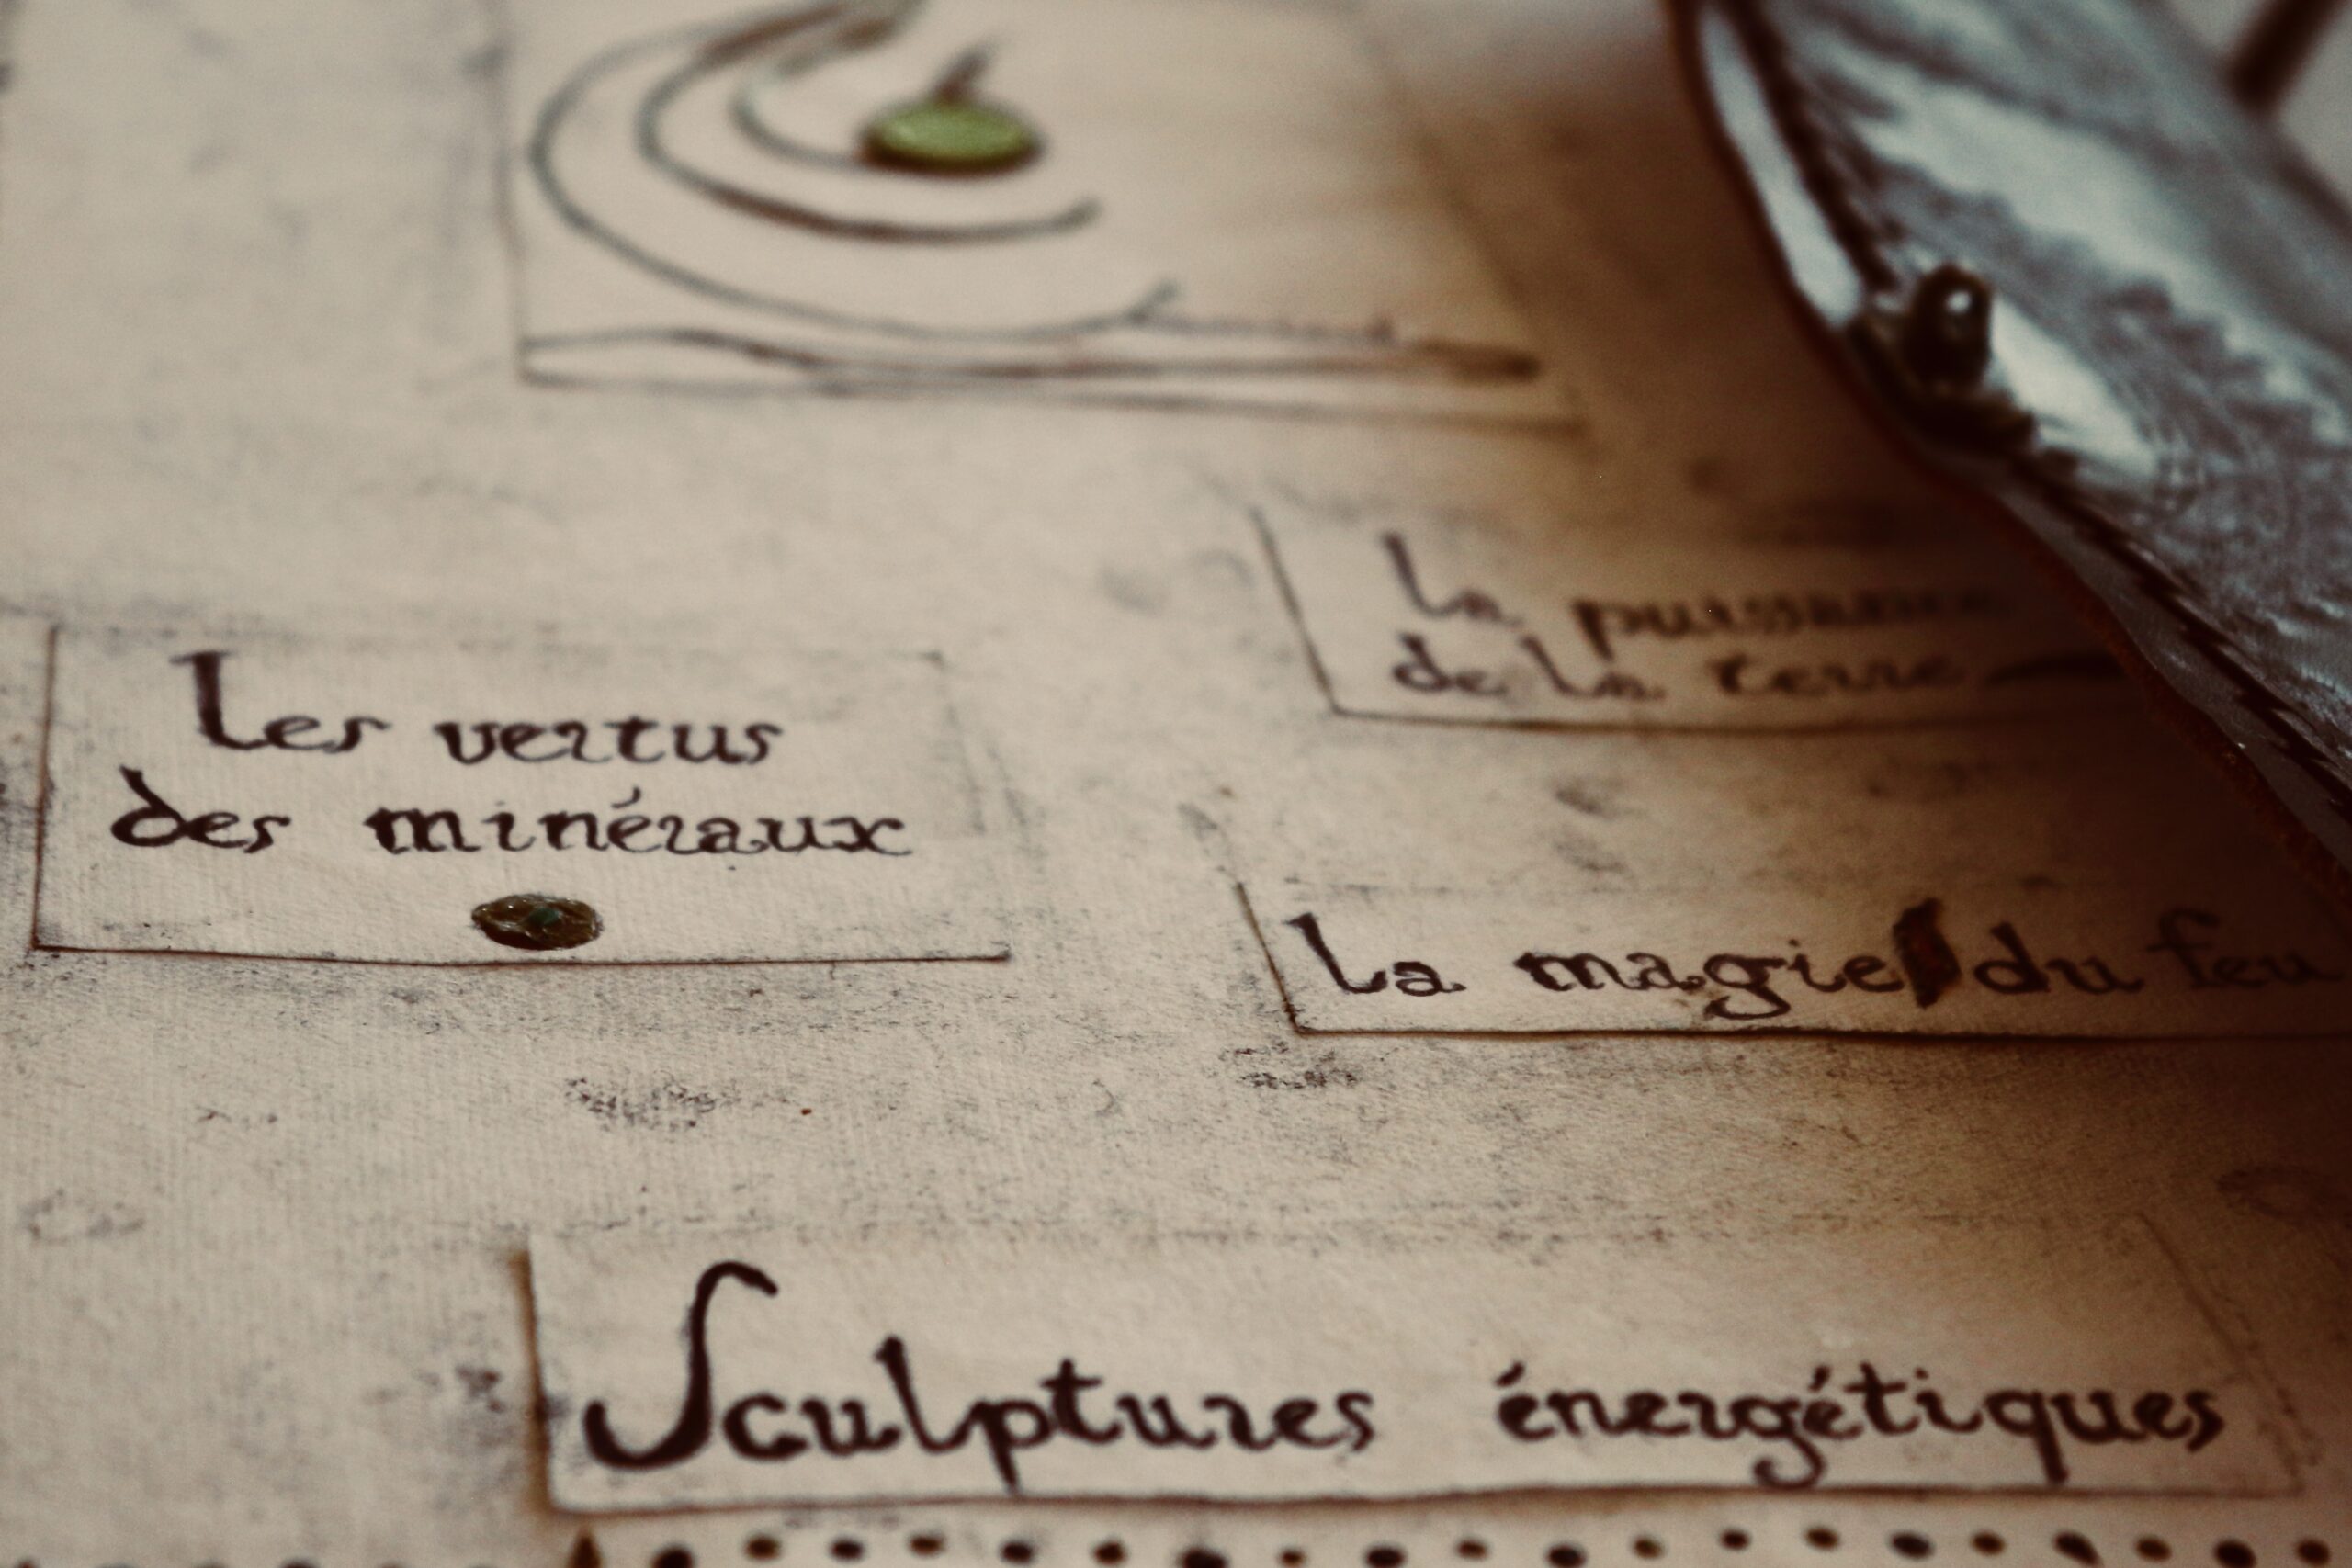 La puissance
de la terre
Les vertus
des minéraux
La magie du feu
Sculptures énergétiques